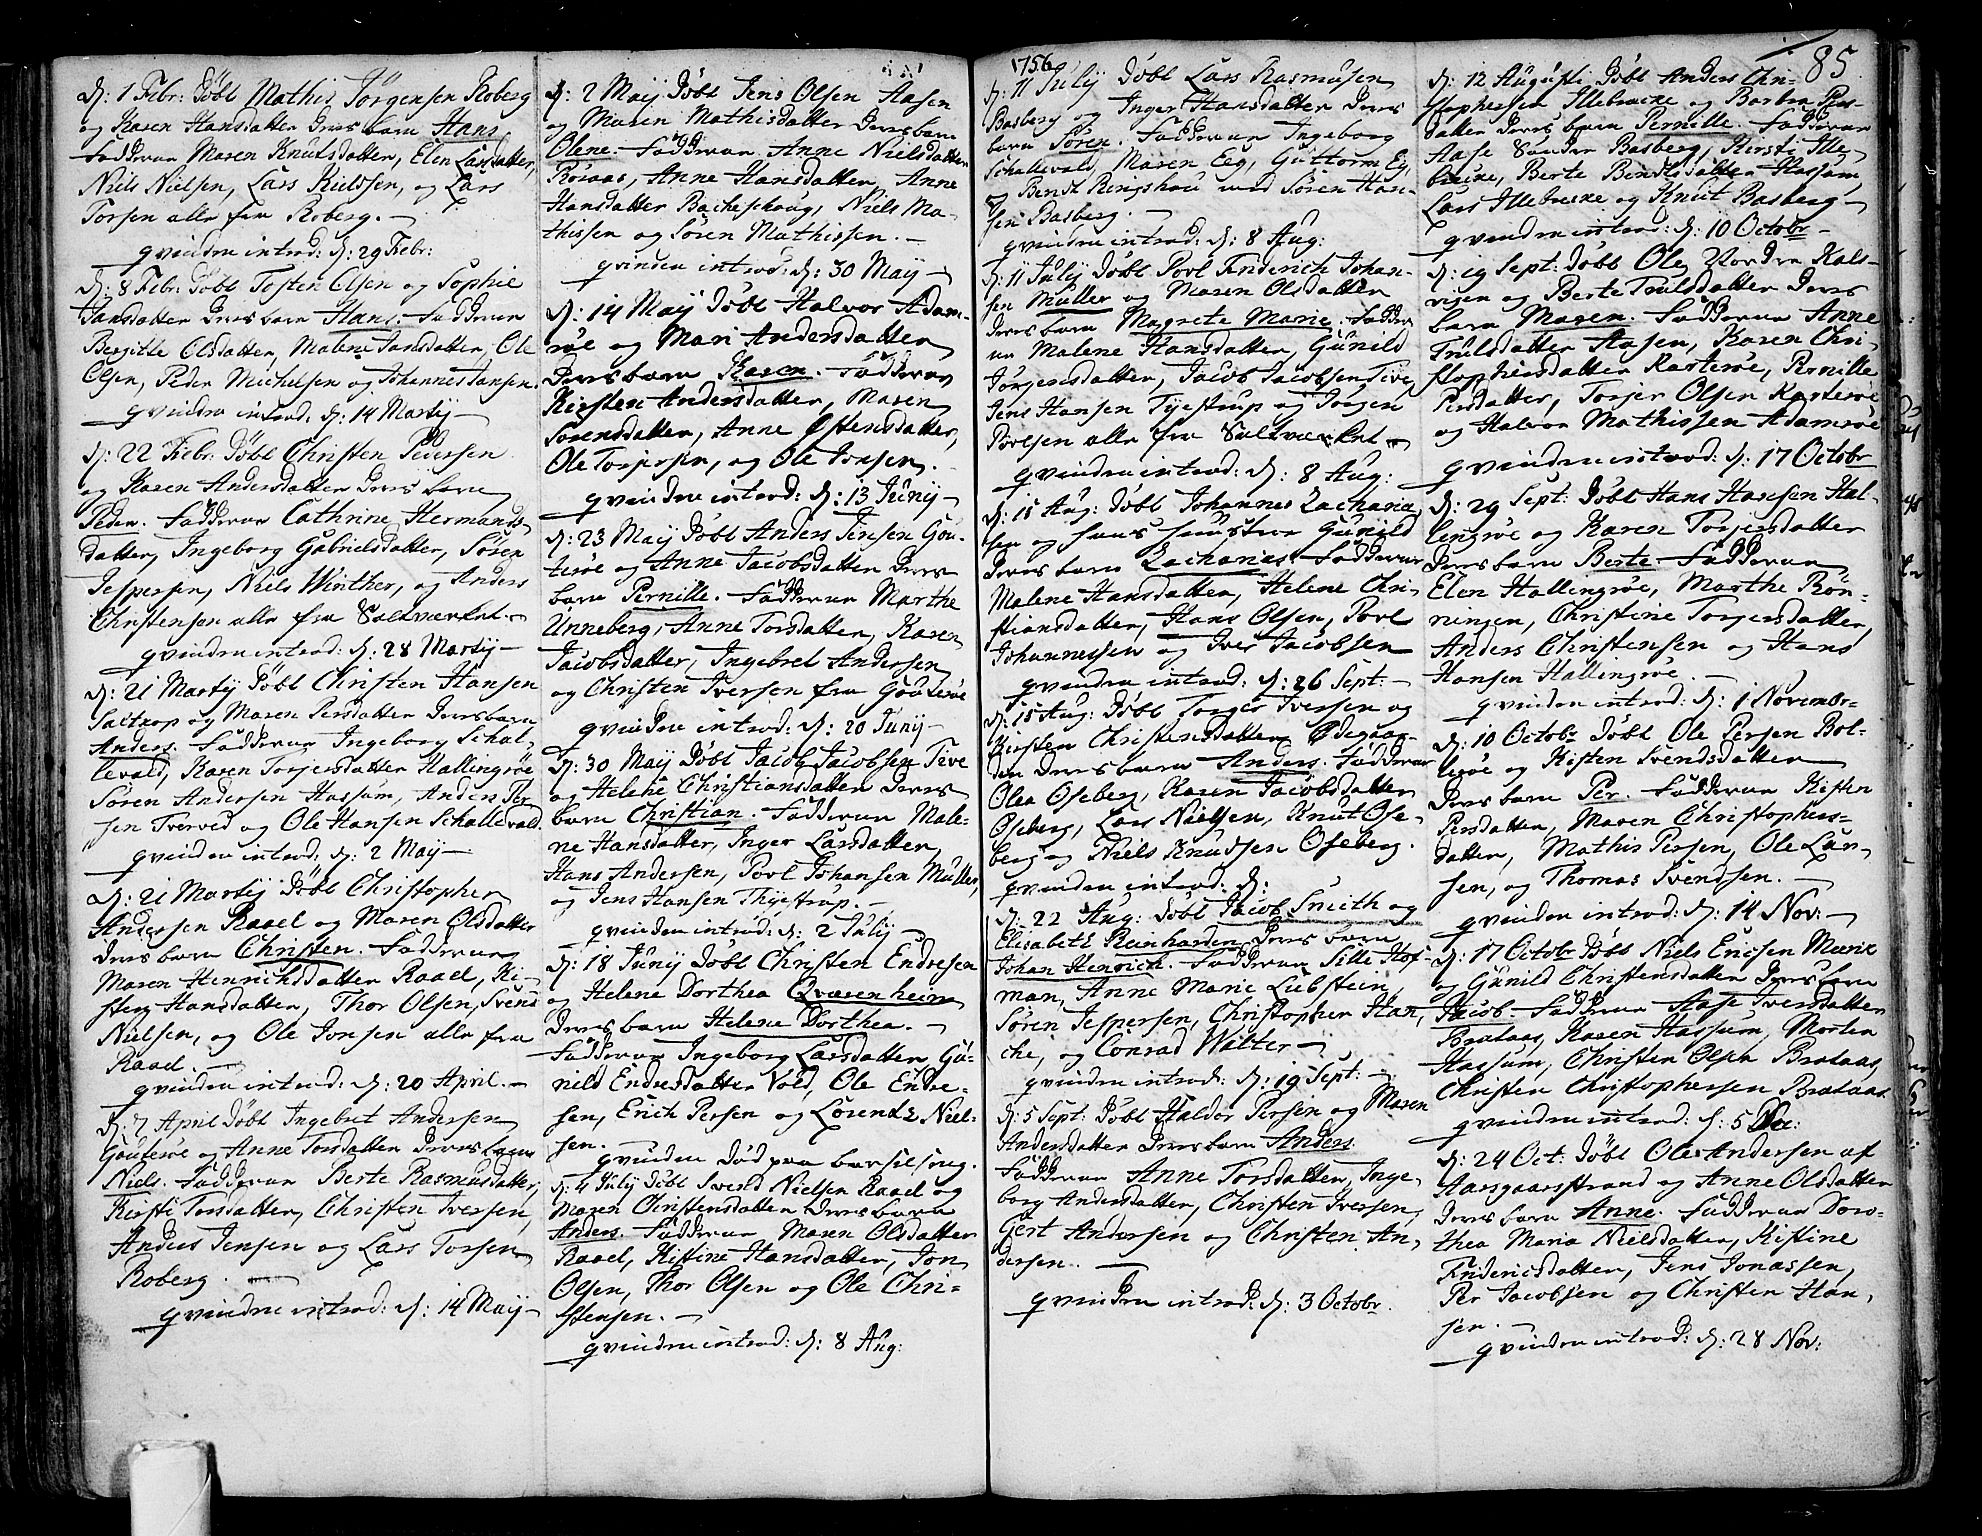 d: 1 Febr: Döbt Mathis Jörgensen Roberg
og Karen Hansdatter deres barn Hans
Fadderne Maren Knutsdatter, Elen Larsdatter,
Niels Nielsen, Lars Kieldsen, og Lars
Torsen alle fra Roberg. —
qvinden introd: d: 29 Febr:
d: 8 Febr: Döbt Tosten Olsen og Sophie
Jansdatter deres barn Hans. Fadderne
Bergitte Olsdatter, Malene Jansdatter, Ole
Olsen, Peder Michelsen og Johannes Jansen.
qvinden introd: d: 14 Martij —
d: 22 Febr: Döbt Christen Pedersen
og Karen Andersdatter deres barn
Peder. Fadderne Cathrine Hermands-
datter, Ingeborg Gabrielsdatter, Sören
Jespersen, Niels Winther, og Anders
Christensen alle fra Saltværket. —
qvinden introd: d: 28 Martij —
d: 21 Martij Döbt Christen Hansen
Saltrop og Maren Persdatter deres barn
Anders. Fadderne Ingeborg Schal-
levald, Karen Torjersdatter Hallingröe
Sören Andersen Hassum, Anders Per-
sen Treved og Ole Hansen Schallevald.
qvinden introd: d: 2 May —
d: 21 Martij Döbt Christopher
Andersen Raael og Maren Olsdatter
deres barn Christen. Fadderne
Maren Henrichsdatter Raael, Ki-
sten Hansdatter, Thor Olsen, Svend
Nielsen, og Ole Jonsen alle fra
Raael. —
qvinden introd: d: 20 April. —
d: 7 April Döbt Ingebret Andersen
Gouteröe og Anne Torsdatter deres barn
Niels. Fadderne Berte Rasmusdatter,
Kirsti Torsdatter, Christen Iversen,
Anders Jensen og Lars Torsen
Roberg. —
qvinden introd: d: 14 Maij —
d: 2 Maij Döbt Jens Olsen Aasen
og Maren Mathisdatter deres barn
Olene. Fadderne Anne Nielsdatter
Roraas, Anne Hansdatter, Anne
Hansdatter Bacheschoug, Niels Ma-
thissen og Sören Mathissen. —
qvinden introd: d: 30 Maij —
d: 14 Maij Döbt Halvor Adam-
röe og Mari Andersdatter
deres barn Karen. Fadderne
Kirsten Andersdatter, Maren
Sörensdatter, Anne Estensdatter,
Ole Torjersen, og Ole Jonsen. —
qvinden introd: d: 13 Junij —
d: 23 Maij Döbt Anders Jensen Gou-
teröe og Anne Jacobsdatter deres
barn Pernille. Fadderne Marthe
Unneberg, Anne Torsdatter, Karen
Jacobsdatter, Ingebret Andersen
og Christen Iversen fra Gouteröe
qvinden introd: d: 20 Junij —
d: 30 Maij Döbt Jacob Jacobsen Tive
og Helene Christiansdatter deres
barn Christian. Fadderne Male-
ne Hansdatter, Inger Larsdatter,
Hans Andersen, Povl Johansen Müller,
og Jens Hansen Thÿestrup. —
qvinden introd: d: 2 Julij —
d: 18 Junij Döbt Christen Endresen
og Helene Dorthea Qværenheim
deres barn Helene Dorthea. —
Fadderne Ingeborg Larsdatter, Gu-
nield Endresdatter Vold, Ole Endre-
sen, Erich Persen og Lörentz Niel-
sen.
qvinden död paa barselseng.
d: 4 Julij Döbt Svend Nielsen Raael og
Maren Christensdatter deres barn
Anders. Fadderne Maren Olsdatter
Raael, Kistine Hansdatter, Jon
Olsen, Thor Olsen og Ole Chri-
stensen. —
qvinden introd: d: 8 Aug:
1756
d: 11 Julij Döbt Lars Rasmusen
Basberg og Inger Hansdatter deres
barn Sören. Fadderne Ingeborg
Schallevald, Maren Eeg, Guttorm Eg,
og Bendt Ringshou med Sören Han-
sen Basberg. —
qvinden introd: d: 8 Aug:
d: 11 Julij Döbt Povl Friderich Johan-
sen Müller og Maren Olsdatter
deres barn Magrete Marie. Fadder-
ne Malene Hansdatter, Gunild
Jörgensdatter, Jacob Jacobsen Tive,
Jens Hansen Tÿestrup og Jörgen
Povelsen alle fra Saltværket —
qvinden introd: d: 8 Aug:
d: 15 Aug: Döbt Johannes Zacharia-
sen og hans hustroe Gunild
deres barn Zacharias. Fadderne
Malene Hansdatter, Helene Chri-
stiansdatter, Hans Olsen, Povl
Johannessen og Iver Jacobsen
qvinden introd: d: 26 Sept: —
d: 15 Aug: Döbt Torger Iversen og
Kirsten Christensdatter Ødegaar-
den deres barn Anders. Fadderne
Olea Oseberg, Karen Jacobsdatter
Oseberg, Lars Nielsen, Knut Ose-
berg og Niels Knudsen Oseberg.
qvinden introd: d:
d: 22 Aug: Döbt Jacob Smith og
Elisabeth Reinharden deres barn
Johan Henrich. Fadderne Sille Hof-
man, Anne Marie Liebstein,
Sören Jespersen, Christopher Han-
che, og Conrad Walter —
qvinden introd: d: 19 Sept: —
d: 5 Sept: Döbt Haldor Persen og Maren
Andersdatter deres barn Anders
Fadderne Anne Torsdatter, Inge-
borg Andersdatter, Christen Iversen,
Gert Andersen og Christen An-
dersen. —
qvinden introd: d: 3 Octobr.
85
d: 12 Augusti Döbt Anders Chri-
stophersen Illebreke og Barbra Pers-
datter deres barn Pernille. Fadderne
Aase Sønder Basberg, Kirsti Ille-
breke, Berte Bendtsdatter Hassum,
Lars Illebreke og Knut Basberg —
qvinden introd: d: 10 Octobr —
d: 19 Sept: Döbt Ole Nordre Kals-
vigen og Berte Trulsdatter deres
barn Maren. Fadderne Anne
Trulsdatter Aasen, Karen Chri-
stophersdatter Karteröe, Pernille
Persdatter, Torjer Olsen Karteröe
og Halvor Mathissen Adamröe
qvinden introd: d: 17 Octobr
d: 29 Sept: Döbt Hans Hansen Hal-
lingröe og Karen Torjersdatter
deres barn Berte. Fadderne
Elen Hallingröe, Marthe Rön-
ningen, Christine Torjersdatter,
Anders Christensen og Hans
Hansen Hallingröe. —
qvinden introd: d: 1 Novembr —
d: 10 Octobr Döbt Ole Persen Bol-
leröe og Kisten Svendsdatter
deres barn Per. Fadderne Kisten
Persdatter, Maren Christophers-
datter, Mathis Persen, Ole Lar-
sen, og Thomas Svendsen. —
qvinden introd: d: 14 Nov: —
d: 17 Octobr Döbt Niels Ericsen Murie
og Gunild Christensdatter deres barn
Jacob. Fadderne Aase Iversdatter
Brataas, Karen Hassum, Morten
Hassum, Christen Olsen Brataas,
Christen Christophersen Brataas
qvinden introd: d: 5 Dec:
d: 24 Oct: Döbt Ole Andersen af
Aarsgaarsstrand og Anne Olsdatter
deres barn Anne. Fadderne Doro-
thea Maria Nielsdatter, Kistine
Friderichsdatter, Jens Jonassen,
Per Jacobsen og Christen Han-
sen. —
qvinden introd: d: 28 Nov: